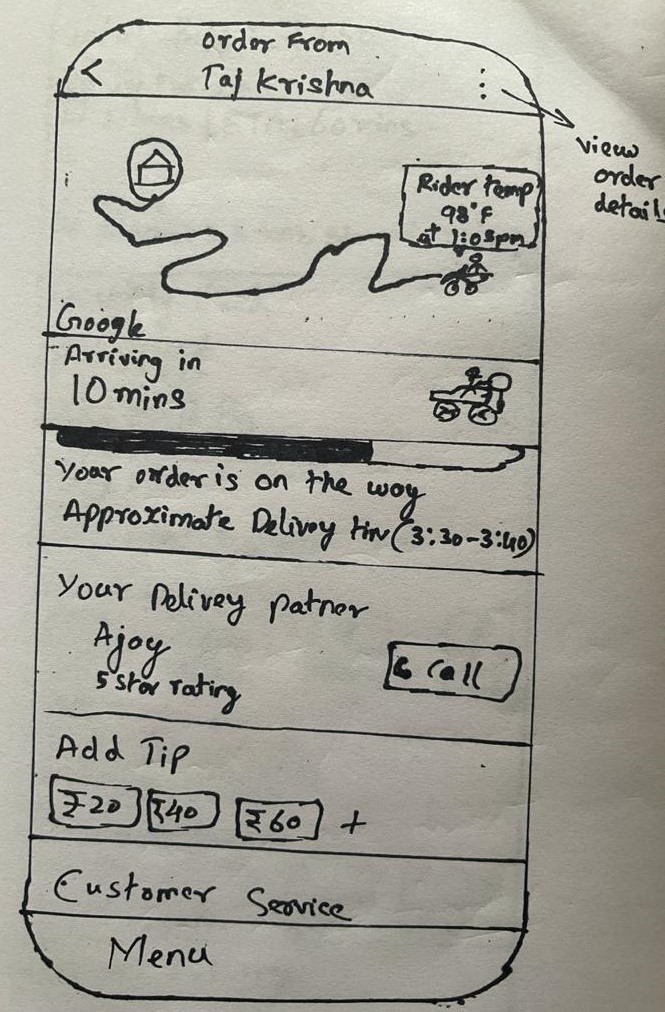 Order From
<
Taj Krishna
⋮
view
order
details
Rider temp
98°F
at 1:05pm
Google
Arriving in
10 mins
Your order is on the way
Approximate Delivey tim (3:30-3:40)
Your Delivey patner
Ajoy
5 star rating
Call
Add Tip
₹20
₹40
₹60
+
Customer Service
Menu